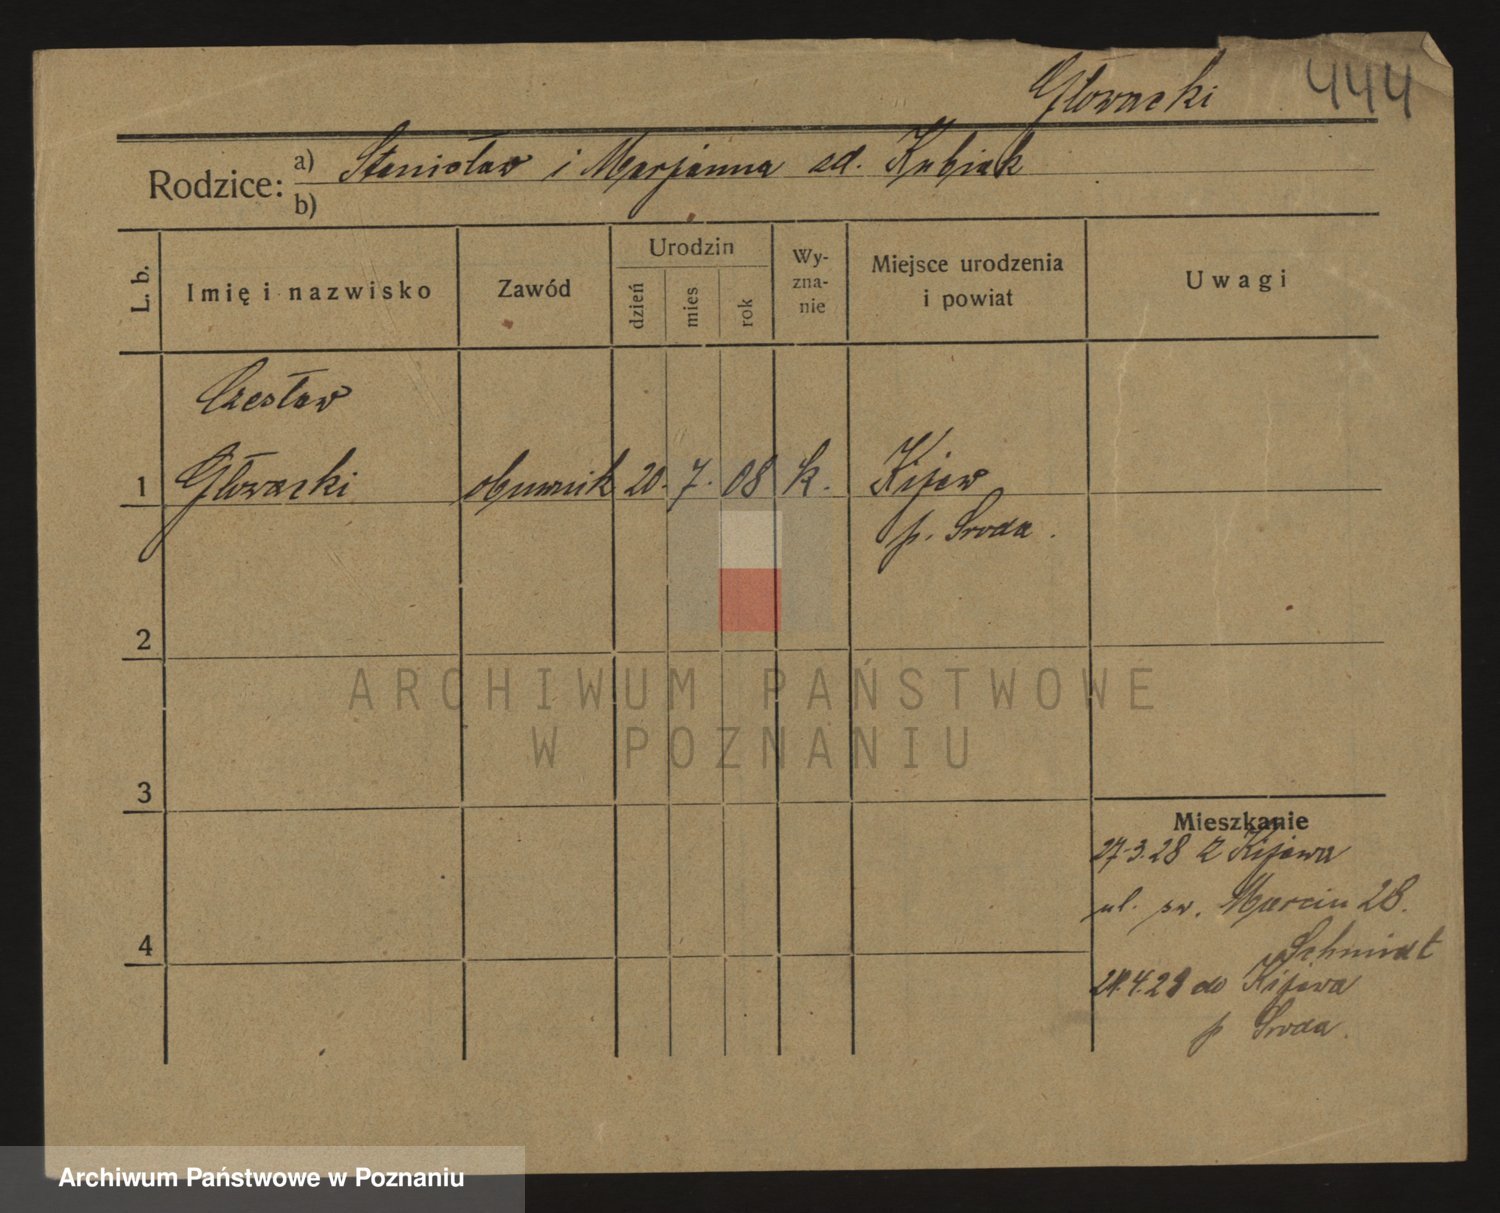 Głowacki 444
Rodzice: a) Stanisław i Marjanna zd. Kubiak
b)
L. b. Imię i nazwisko Zawód Urodzin dzień mies rok Wyznanie Miejsce urodzenia i powiat Uwagi
Czesław
1 Głowacki obuwnik 20. 7. 08 k. Kijew
p. Środa.
2
ARCHIWUM PAŃSTWOWE
W POZNANIU
3
Mieszkanie
27.3.28 z Kijewa
ul. św. Marcin 28.
4
Schmidt
do Kijewa
p Środa.
Archiwum Państwowe w Poznaniu